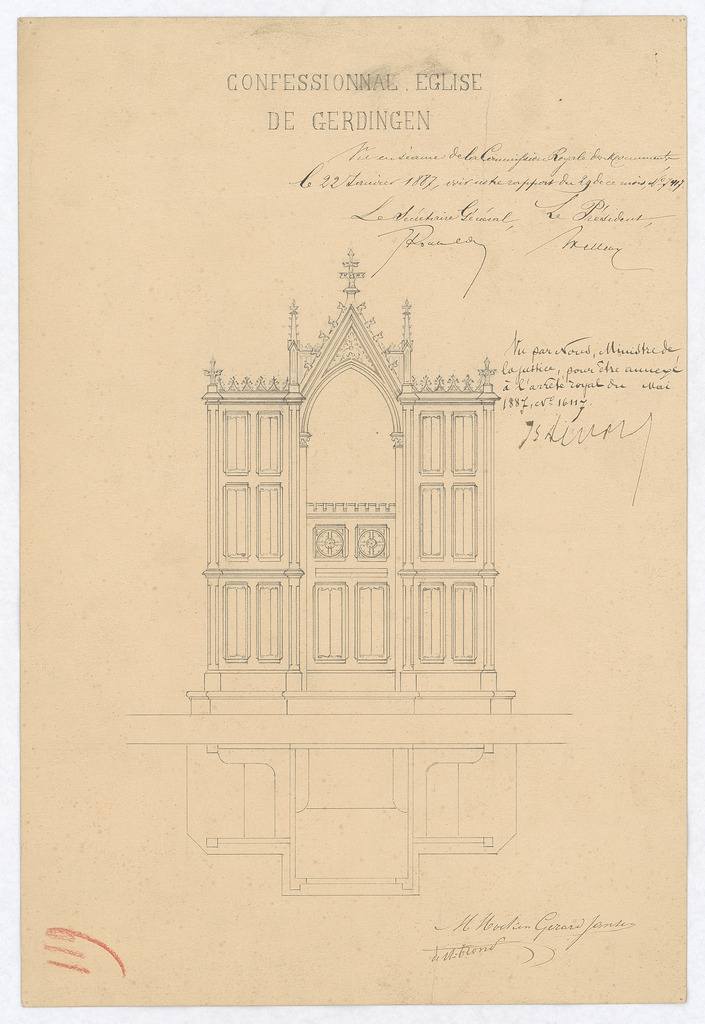 CONFESSIONNAL. EGLISE
DE GERDINGEN
Vu en séance de la Commission Royale des Monuments
le 22 Janvier 1887, voir notre rapport du 29 de ce mois Nº
Le Secrétaire Général, Le Président,
Vu par Nous, Ministre de
la justice, pour être annexé
à l'arrêté royal du Mai
1887, Nº 16117.
M. Gerard Jansen
de St. Trond